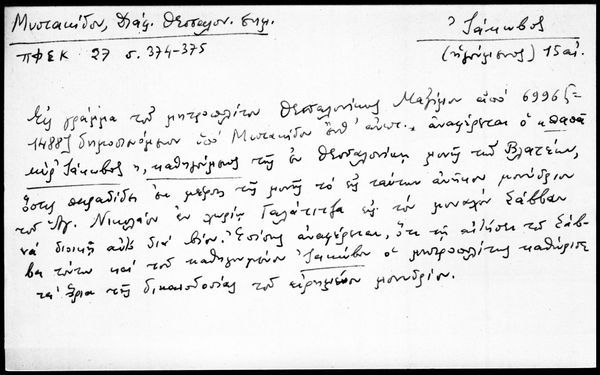 Μυστακίδου, Διάφ. Θεσσαλον. Σημ.
Ἰάκωβος
ΠΦΣΚ 27 σ. 374-375
(ἡγούμενος) 15 αἰ.
Εἰς γράμμα τοῦ μητροπολίτου Θεσσαλονίκης Μαξίμου ἀπό 6996 [=
1488] δημοσιευόμενον ὑπό Μυστακίδου ἔνθ' ἀνωτ., ἀναφέρεται ὁ «παπᾶ
κῦρ Ἰάκωβος», καθηγούμενος τῆς ἐν Θεσσαλονίκῃ μονῆς τῶν Βλατέων,
ὅστις παραδίδει ἐκ μέρους τῆς μονῆς τό εἰς ταύτην ἀνῆκον μονύδριον
τοῦ Ἁγ. Νικολάου ἐν χωρίῳ Γαλάτιτζα εἰς τόν μοναχόν Σάββαν
νά διοικῇ αὐτό διά βίου. Ἐπίσης ἀναφέρεται, ὅτι τῇ αἰτήσει τοῦ Σάβ-
βα τούτου καί τοῦ καθηγουμένου Ἰακώβου ὁ μητροπολίτης καθώρισε
τά ὅρια τῆς δικαιοδοσίας τοῦ εἰρημένου μονυδρίου.